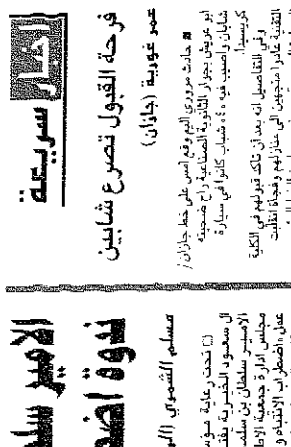 أخبار سريعة
فرحة القبول تصرع شابين
عمر عودية (جازان)
حادث مروري أليم وقع أمس على خط جازان/
أبو عريش بجوار الثانوية الصناعية راح ضحيته
شابان وأصيب فيه ٤ شباب كانوا في سيارة
كريسيدا.
وفي التفاصيل أنه بعد أن تأكد قبولهم في الكلية
التقنية غادرا متجهين إلى منازلهم وفجأة انقلبت
الأمير سل
ندوة اض
مسلم الشمري (ال
تحت رعاية
آل سعود الخيرية
الأمير سلطان بن سلم
مجلس إدارة جمعية الا
عمل اضطراب الانتباه و